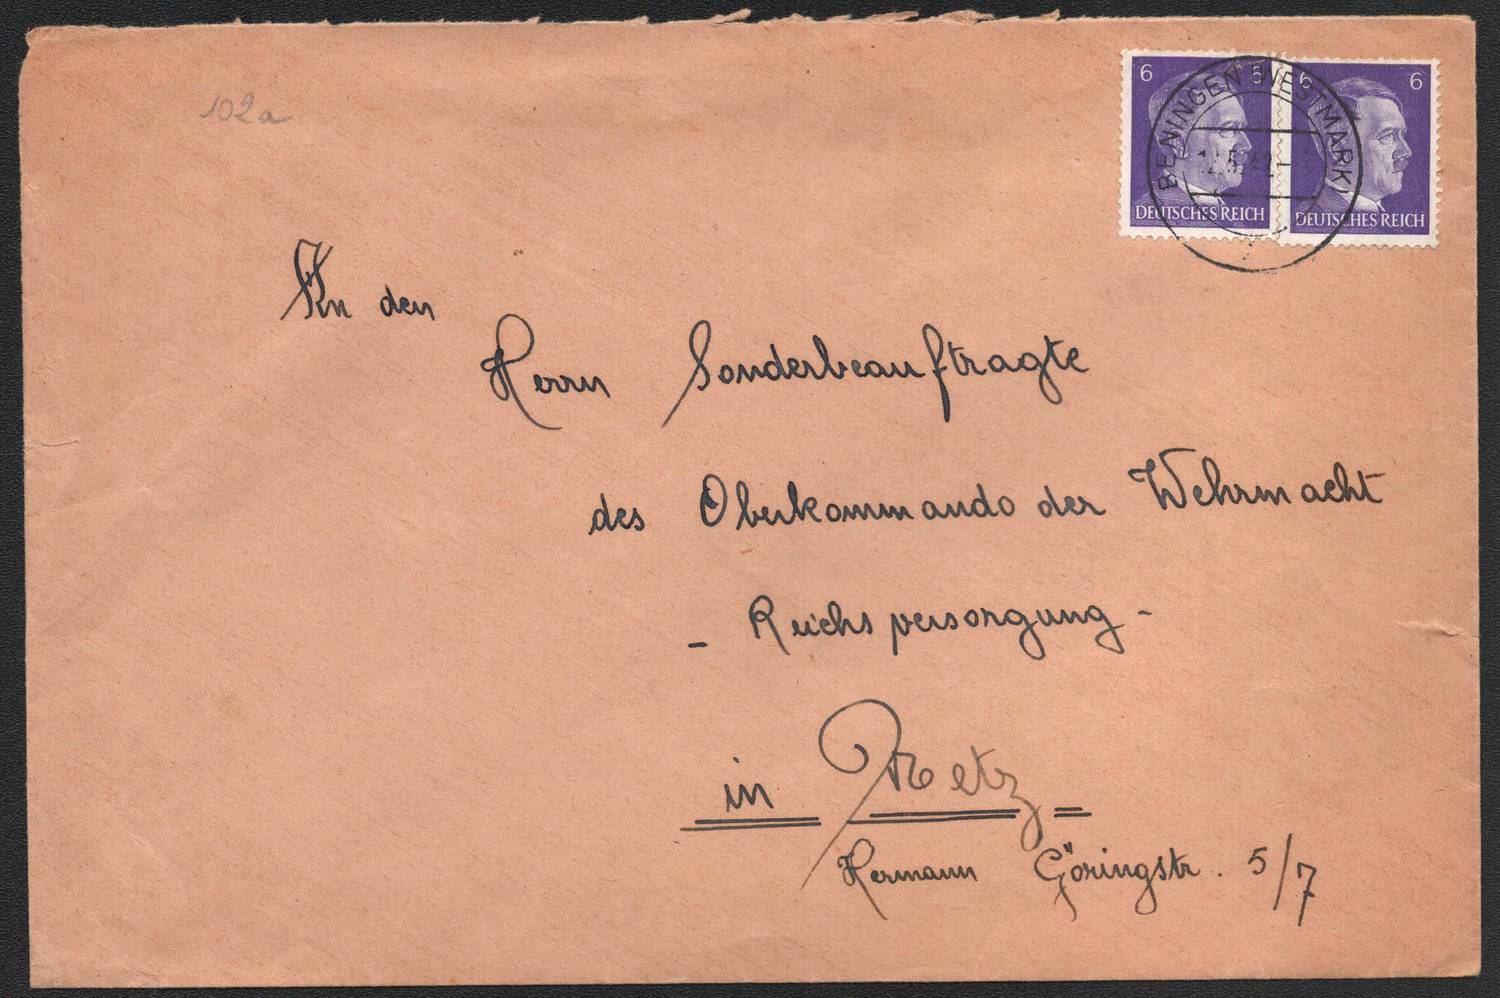 102a
6 6
6 6
DEUTSCHES REICH
DEUTSCHES REICH
BENINGEN (WESTMARK
An den
Herrn Sonderbeauftragte
des Oberkommando der Wehrmacht
- Reichsversorgung -
in Metz =
Hermann Göringstr. 5/7